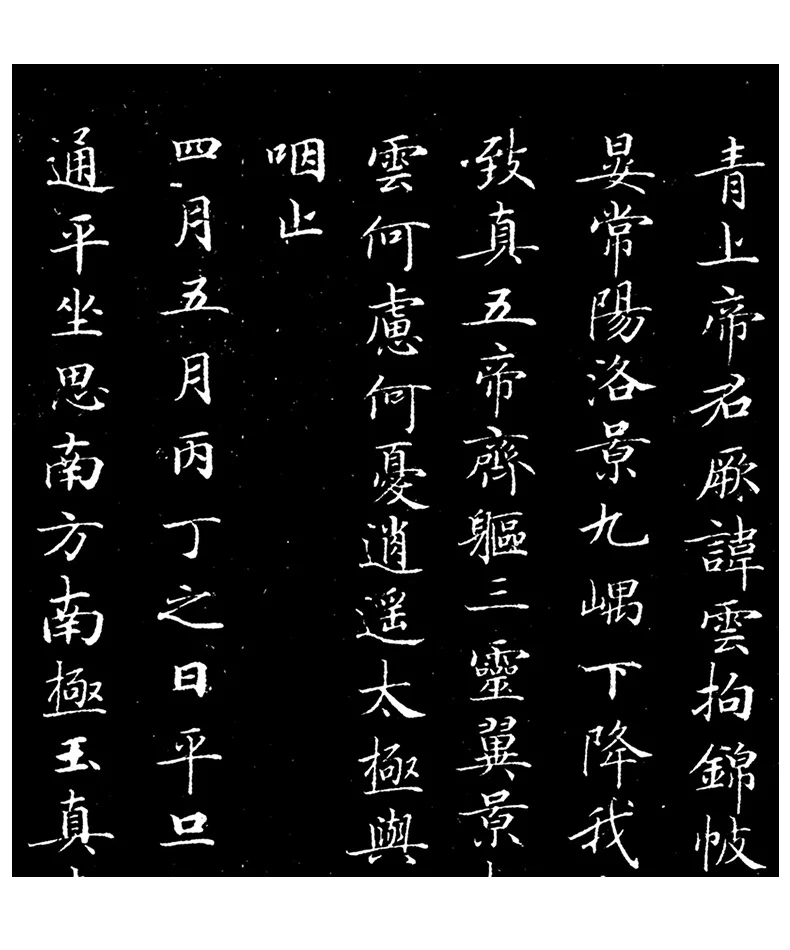 青上帝君厥諱雲拘錦帔
晏常陽洛景九嵎下降我
致真五帝齊軀三靈翼景
雲何慮何憂逍遥太極與
咽止
四月五月丙丁之日平旦
通平坐思南方南極玉真